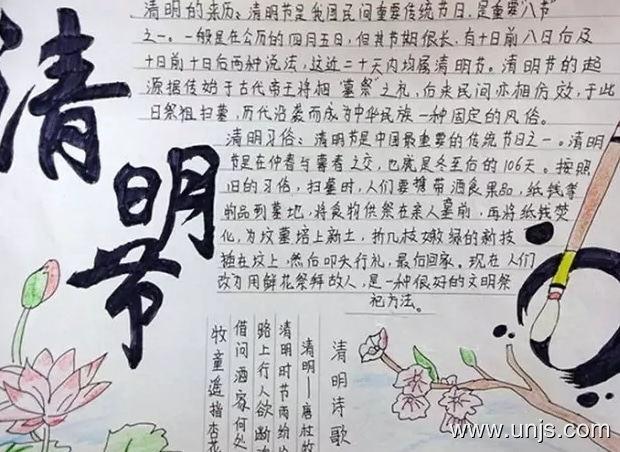 清明节
清明的来历：清明节是我国民间重要传统节日，是重要"八节"
之一。一般是在公历的四月五日，但其节期很长，有十日前八日后及
十日前十日后两种说法，这近二十天内均属清明节。清明节的起
源据传始于古代帝王将相"墓祭"之礼，后来民间亦相仿效，于此
日祭祖扫墓，历代沿袭而成为中华民族一种固定的风俗。
清明习俗：清明节是中国最重要的传统节日之一。清明
节是在仲春与暮春之交，也就是冬至后的106天。按照
旧的习俗，扫墓时，人们要携带酒食果品，纸钱等
物品到墓地，将食物供祭在亲人墓前，再将纸钱焚
化，为坟墓培上新土，折几枝嫩绿的新枝
插在坟上，然后叩头行礼，最后回家。现在人们
改为用鲜花祭拜故人，是一种很好的文明祭
祀方法。
清明诗歌
清明—唐杜牧
清明时节雨纷
路上行人欲断
借问酒家何处
牧童遥指杏花
www.unjs.com